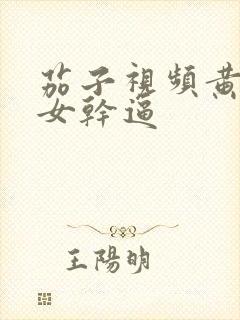 茄子視頻黃
女幹逼
王陽明